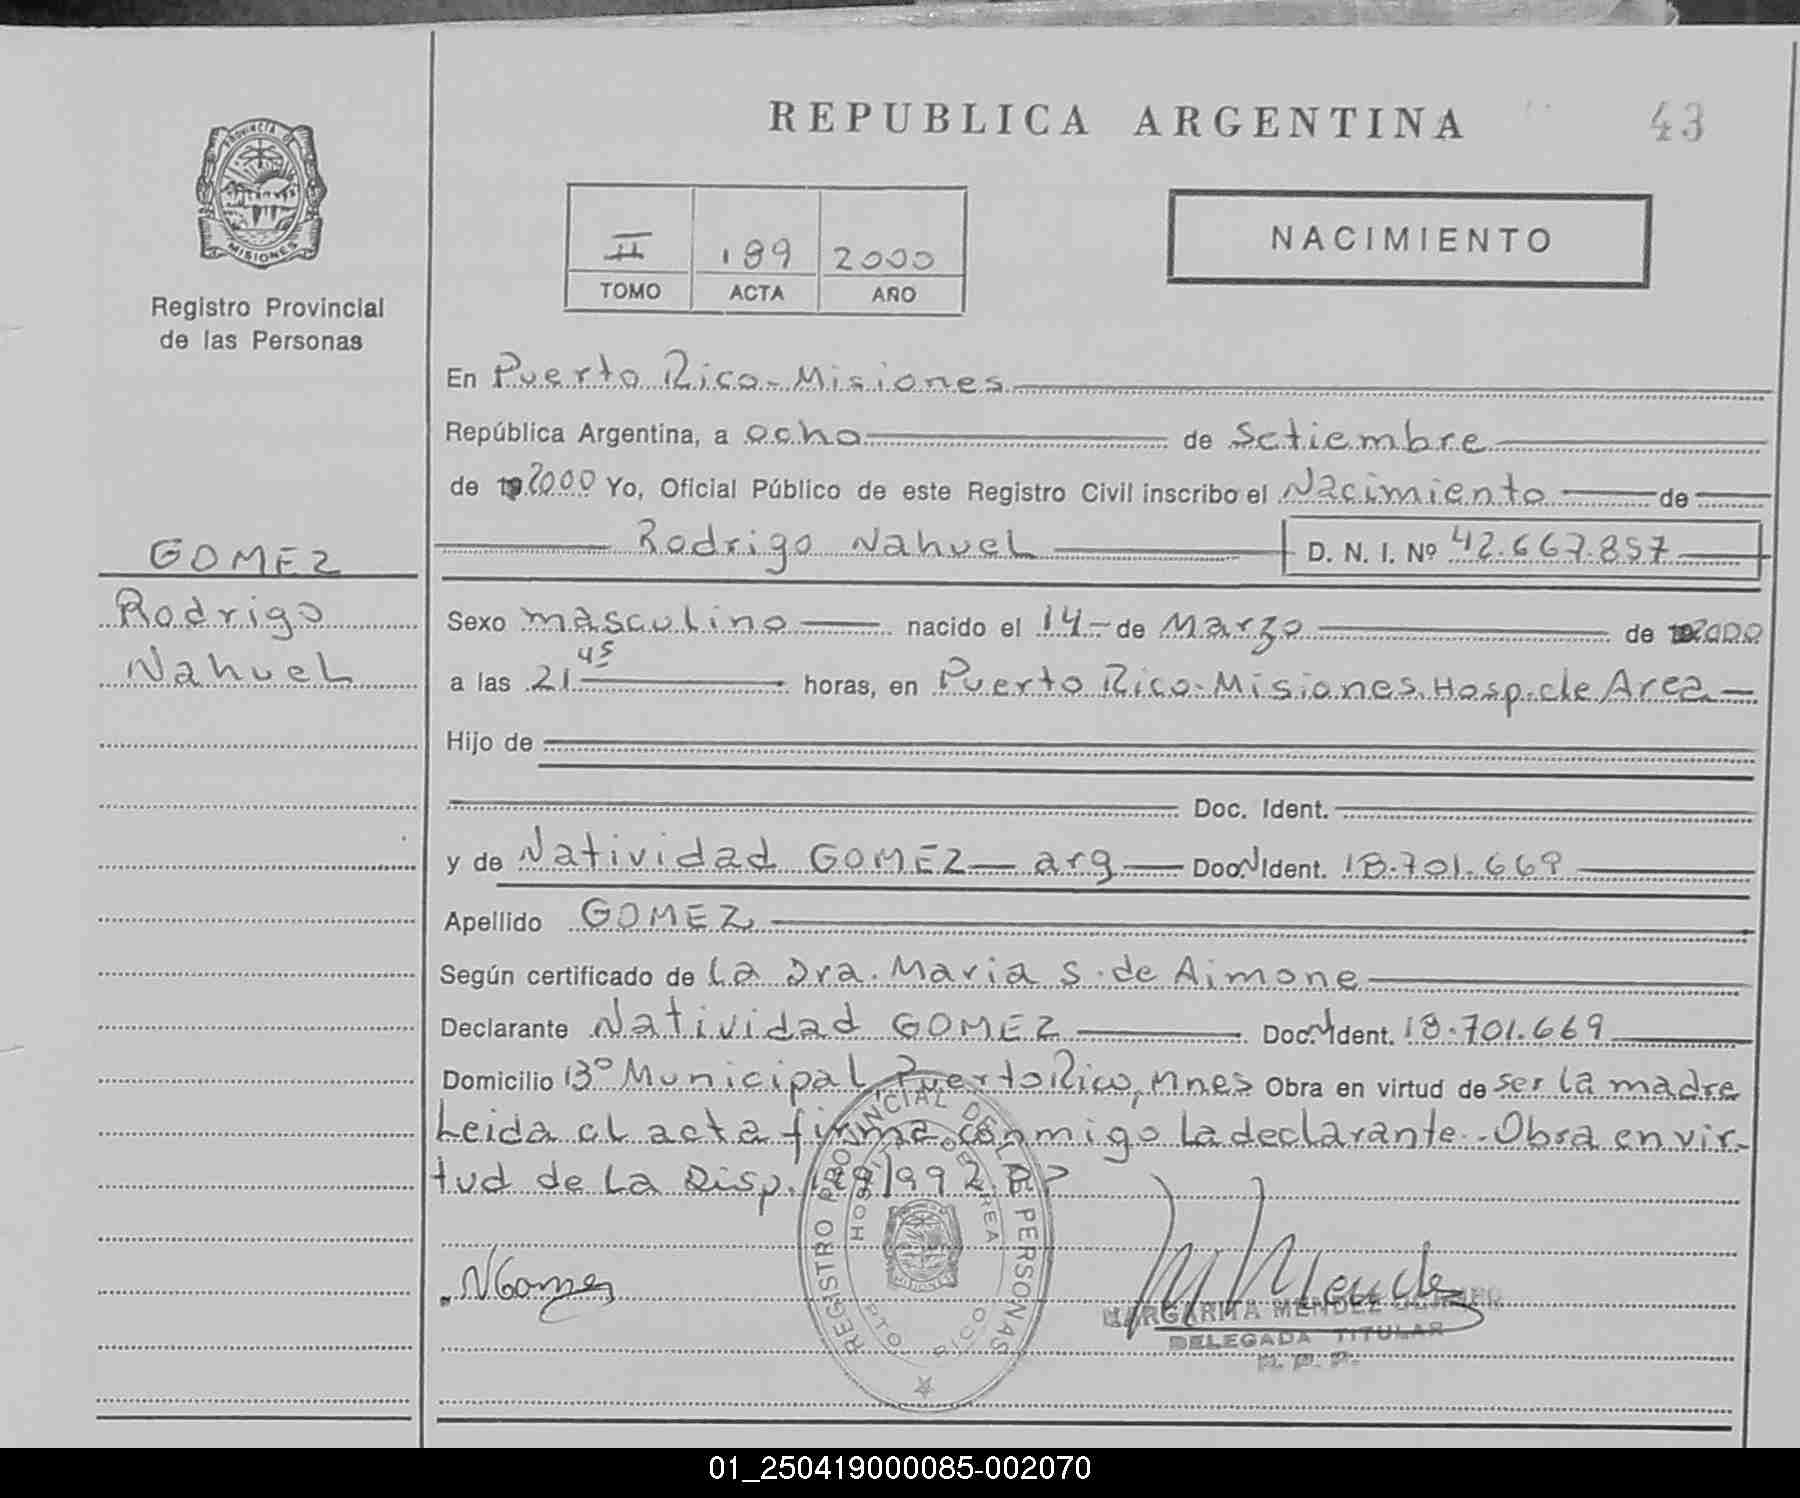 REPUBLICA ARGENTINA
43
PROVINCIA DE
MISIONES
Registro Provincial
de las Personas
II 189 2000
TOMO ACTA AÑO
NACIMIENTO
En Puerto Rico - Misiones
República Argentina, a ocho de Setiembre
de 2000 Yo, Oficial Público de este Registro Civil inscribo el Nacimiento de
Rodrigo Nahuel D. N. I. Nº 42.667.857
GOMEZ
Rodrigo
Nahuel
Sexo masculino nacido el 14 - de Marzo de 2000
a las 21 45 horas, en Puerto Rico - Misiones. Hosp. de Area
Hijo de
Doc. Ident.
y de Natividad GOMEZ - arg - Doc. Ident. 18.701.669
Apellido GOMEZ
Según certificado de la Dra. Maria S. de Aimone
Declarante Natividad GOMEZ Doc. Ident. 18.701.669
Domicilio Bº Municipal Puerto Rico, Mnes Obra en virtud de ser la madre
Leida el acta firma conmigo la declarante. - Obra en vir-
tud de la Disp.
REGISTRO PROVINCIAL DE LAS PERSONAS
HOSPITAL DE AREA
PTO RICO
MISIONES
NGomez
MMendez
MARGARITA MENDEZ
DELEGADA TITULAR
R. P. P.
01_250419000085-002070